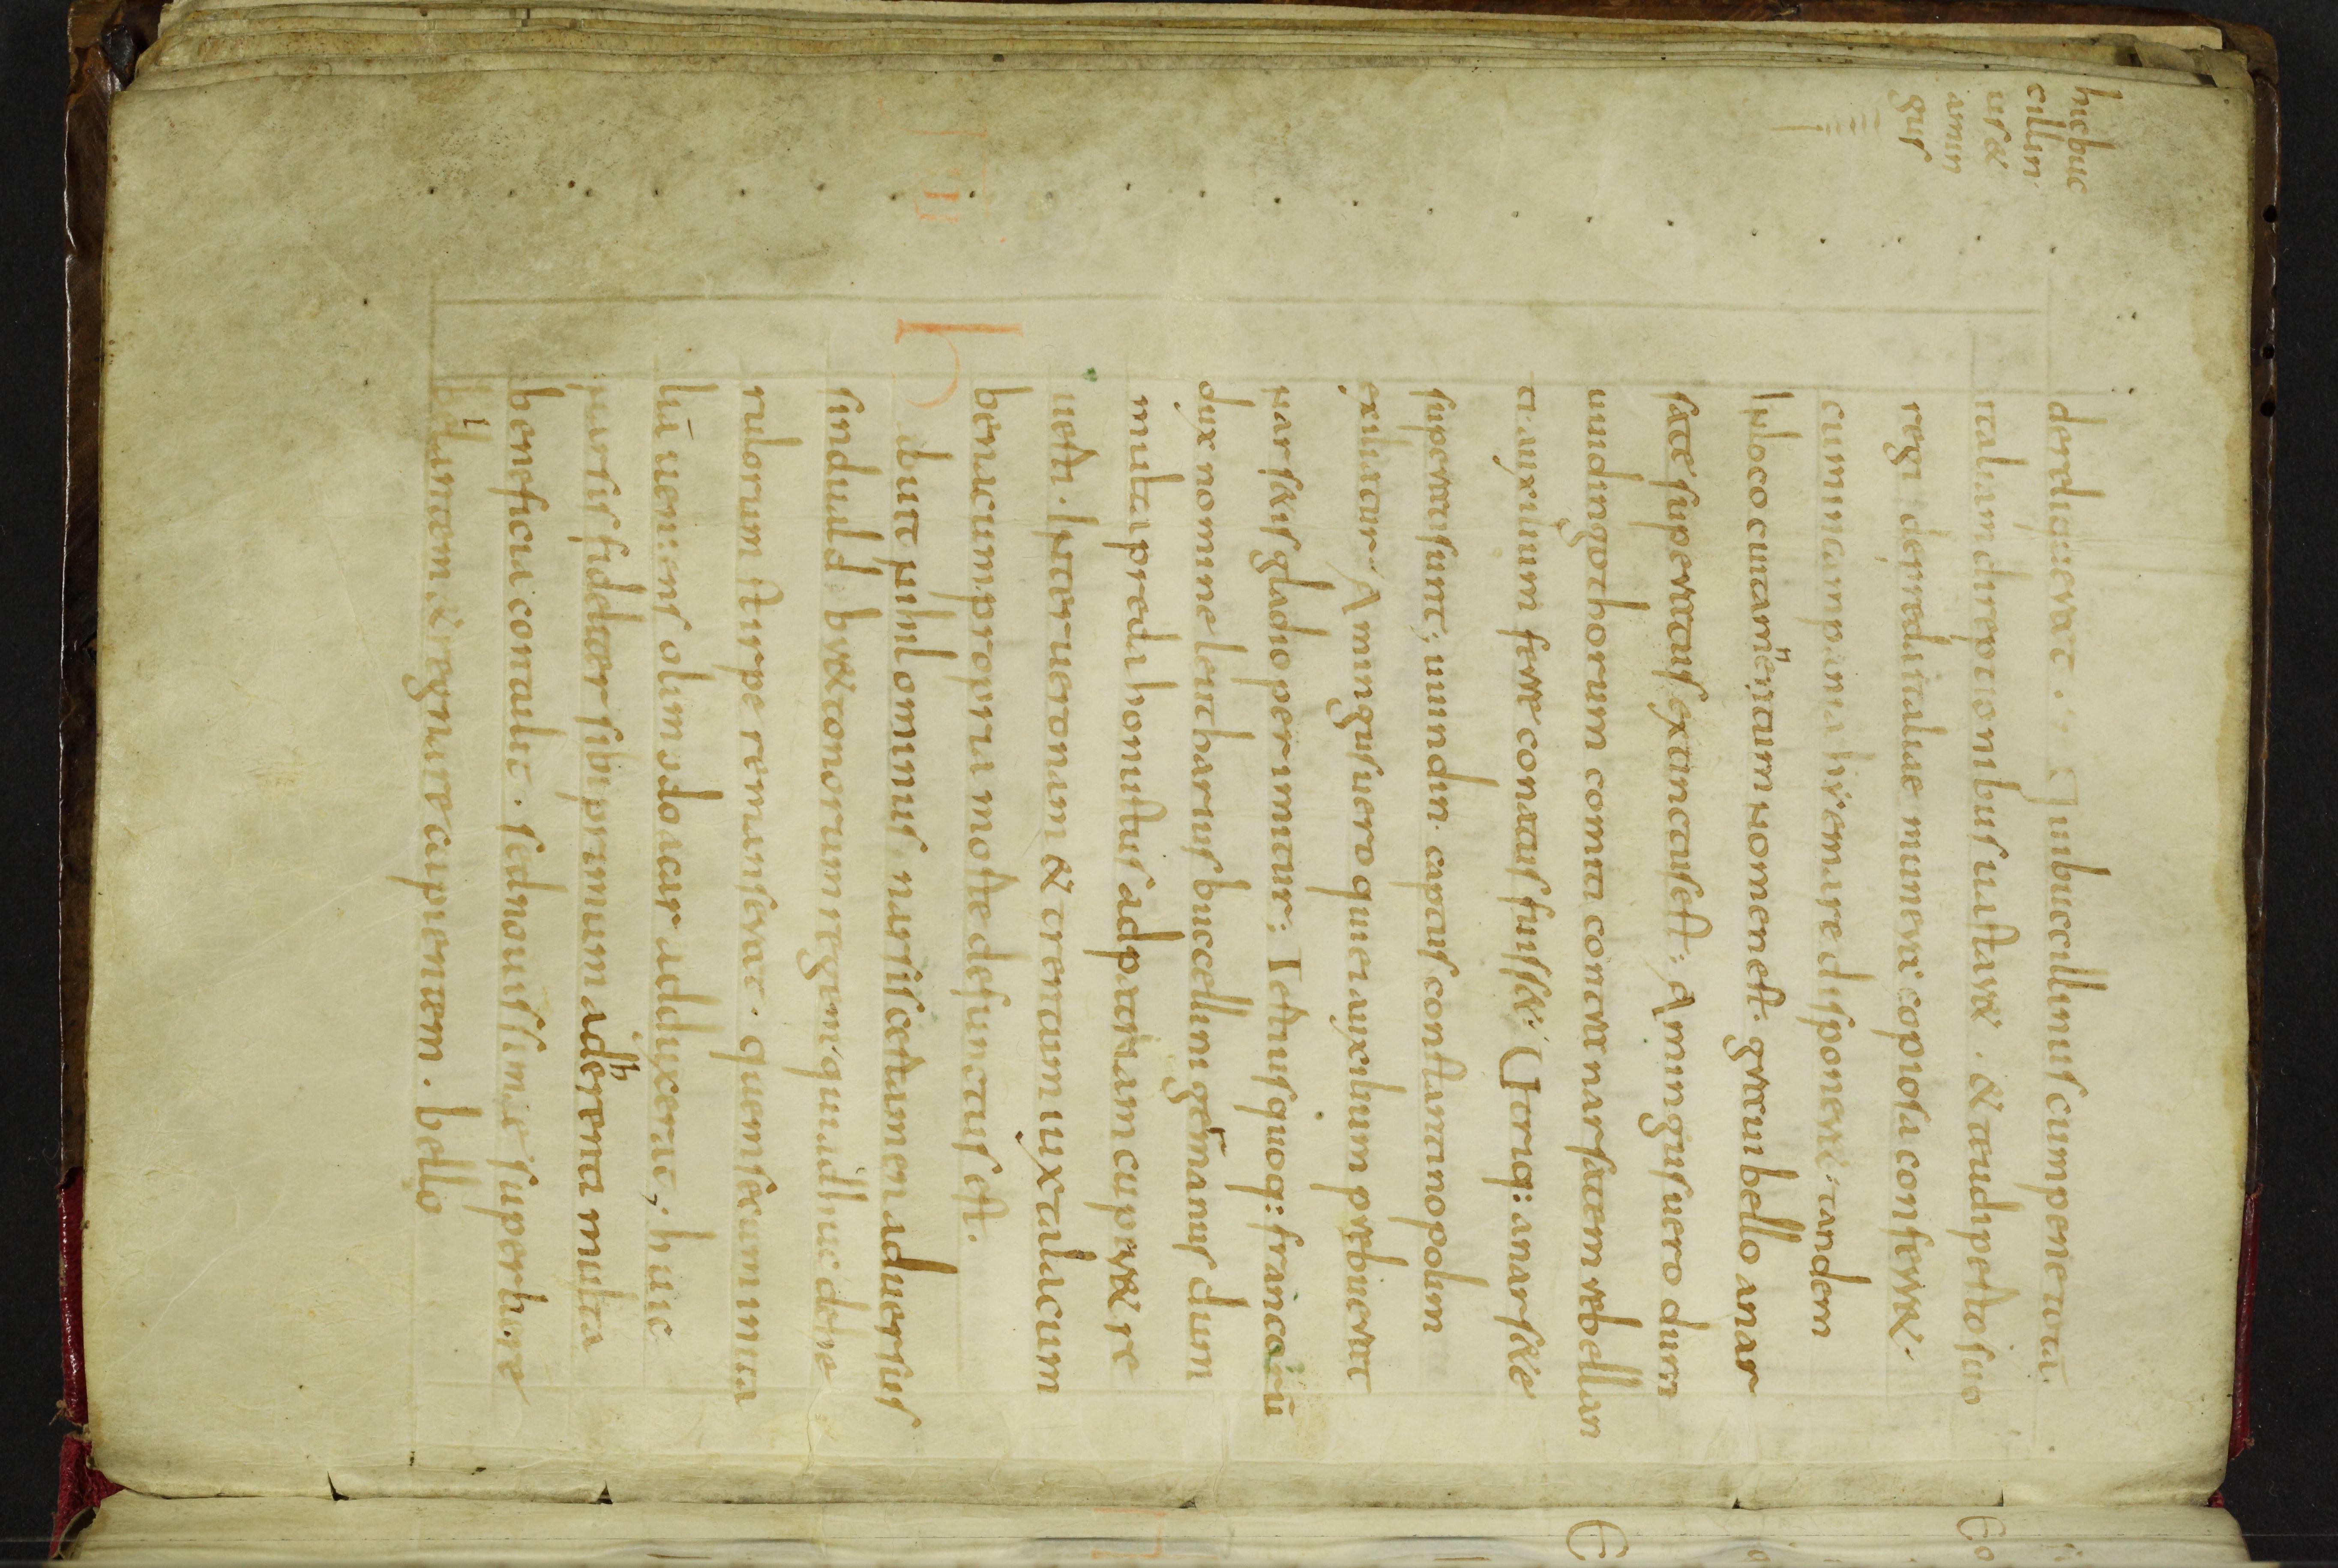 hicbuc
cillin
us&
amin
gus
dereliquerat. Qui buccillinus cum pene totā
italiam direptionibus uastar&. & teudiperto suo
regi depreda italiae munera copiosa conferr&.
cum incampania hiemare disponer&. tandem
In loco cui tannetum nomen est. graui bello anar
sete superatus extinctus est; Amingus uero dum
uuidin gothorum comiti contra narsetem rebellan
ti auxilium ferre conatus fuiss&; Utriq: anars&e
superati sunt; uuindin captus constantinopolim
exiliatur. Amingus uero qui ei auxilium prebuerat
nars&is gladio perimitur; Tertius quoq: francorū
dux nomine leutharius buccellini germanus dum
multa preda honustus ad patriam cuper& re
uerti. Inter ueronam & trentum iuxta lacum
benacum propria morte defunctus est.
habuit nihilominus narsis certamen aduersus
sinduald br&tonorum regem qui adhuc dehe
rulorum stirpe remanserat. quem secum in ita
liā ueniens olim odoacar adduxerat; huic
narsis fideliter sibi primum adherenti multa
beneficia contulit. sed nouissime superbire
bellantem & regnare cupientem. bello